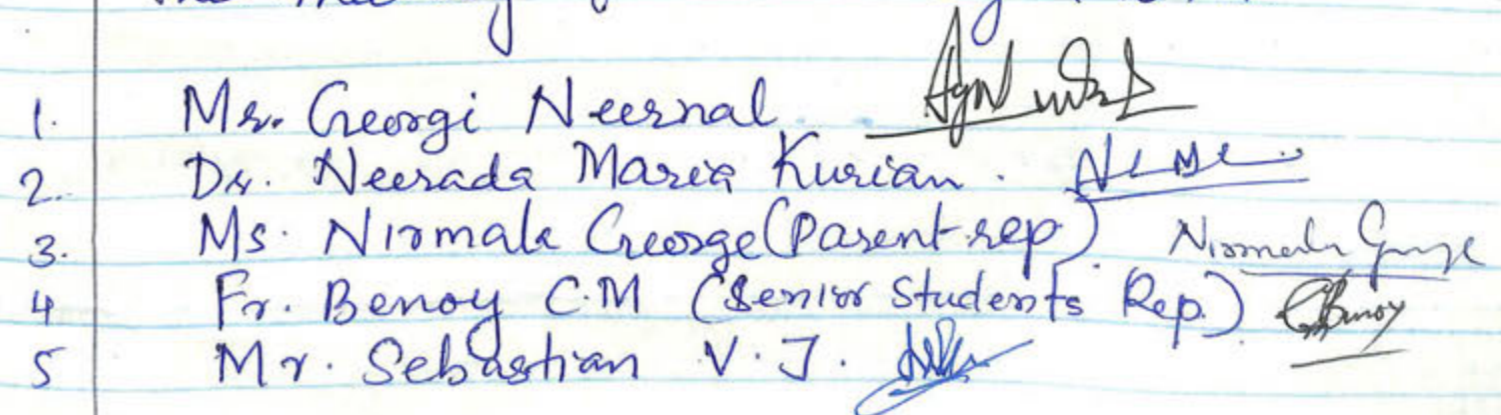 1. Mr. Georgi Neernal
2. Dr. Neerada Maria Kurian.
3. Ms. Nirmala George (Parent rep) Nirmala George
4 Fr. Benoy C.M (Senior Students Rep.) Benoy
5 Mr. Sebastian V.J.